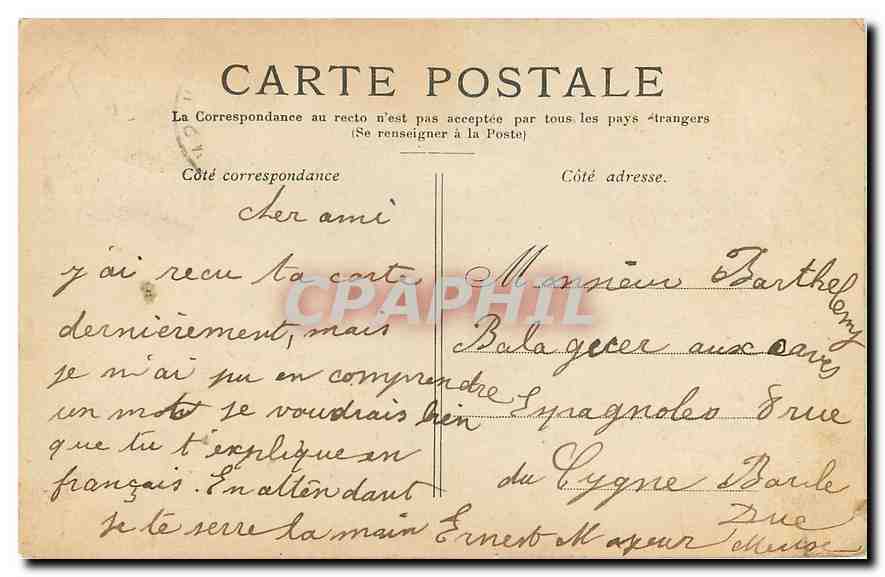 CARTE POSTALE
La Correspondance au recto n'est pas acceptée par tous les pays étrangers
(Se renseigner à la Poste)
Côté correspondance
cher ami
j'ai recu ta carte
dernièrement, mais
je n'ai pu en comprendre
un mot je voudrais bien
que tu t'explique en
français. En attendant
je te serre la main Ernest Mayeur
Côté adresse.
Monsieur Barthelemy
Balaguer aux caves
Espagnoles 8 rue
du Cygne Bar le
Duc
Meuse
CPAPHIL